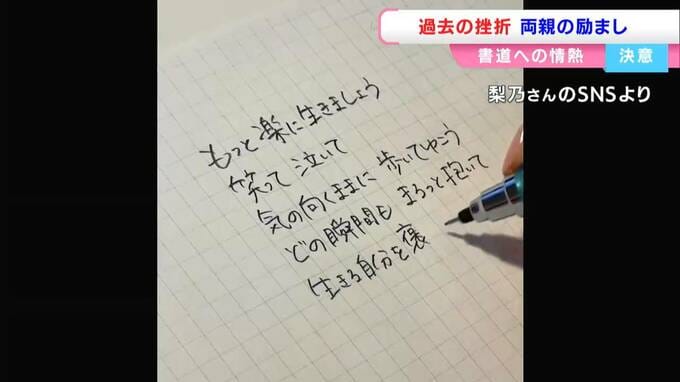 過去の挫折 両親の励まし
書道への情熱 決意
梨乃さんのSNSより
もっと楽に生きましょう
笑って 泣いて
気の向くままに 歩いてゆこう
どの瞬間も まるっと抱いて
生きる自分を褒